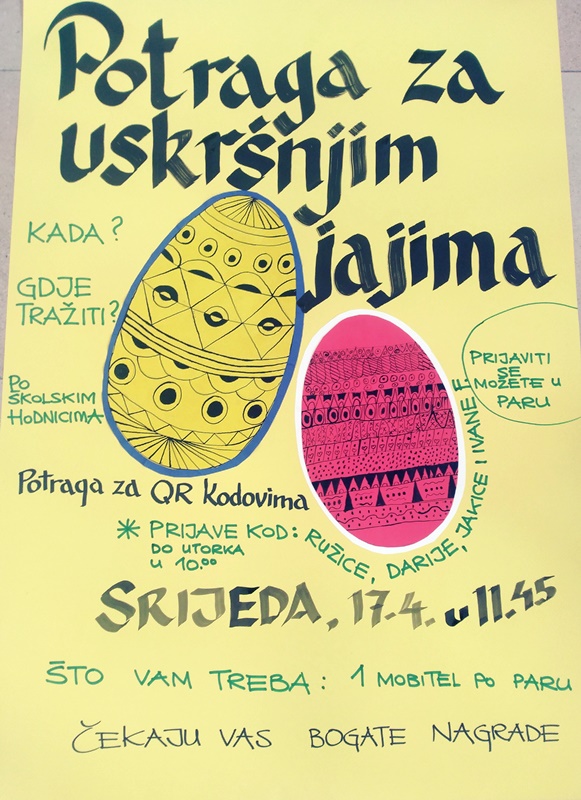 Potraga za
uskršnjim
jajima
KADA?
GDJE
TRAŽITI?
PO
ŠKOLSKIM
HODNICIMA
PRIJAVITI
SE
MOŽETE U
PARU
Potraga za QR kodovima
* PRIJAVE KOD: RUŽICE, DARIJE, JAKICE I IVANE F
DO UTORKA
U 10.00
SRIJEDA, 17.4. u 11.45
ŠTO VAM TREBA: 1 MOBITEL PO PARU
ČEKAJU VAS BOGATE NAGRADE